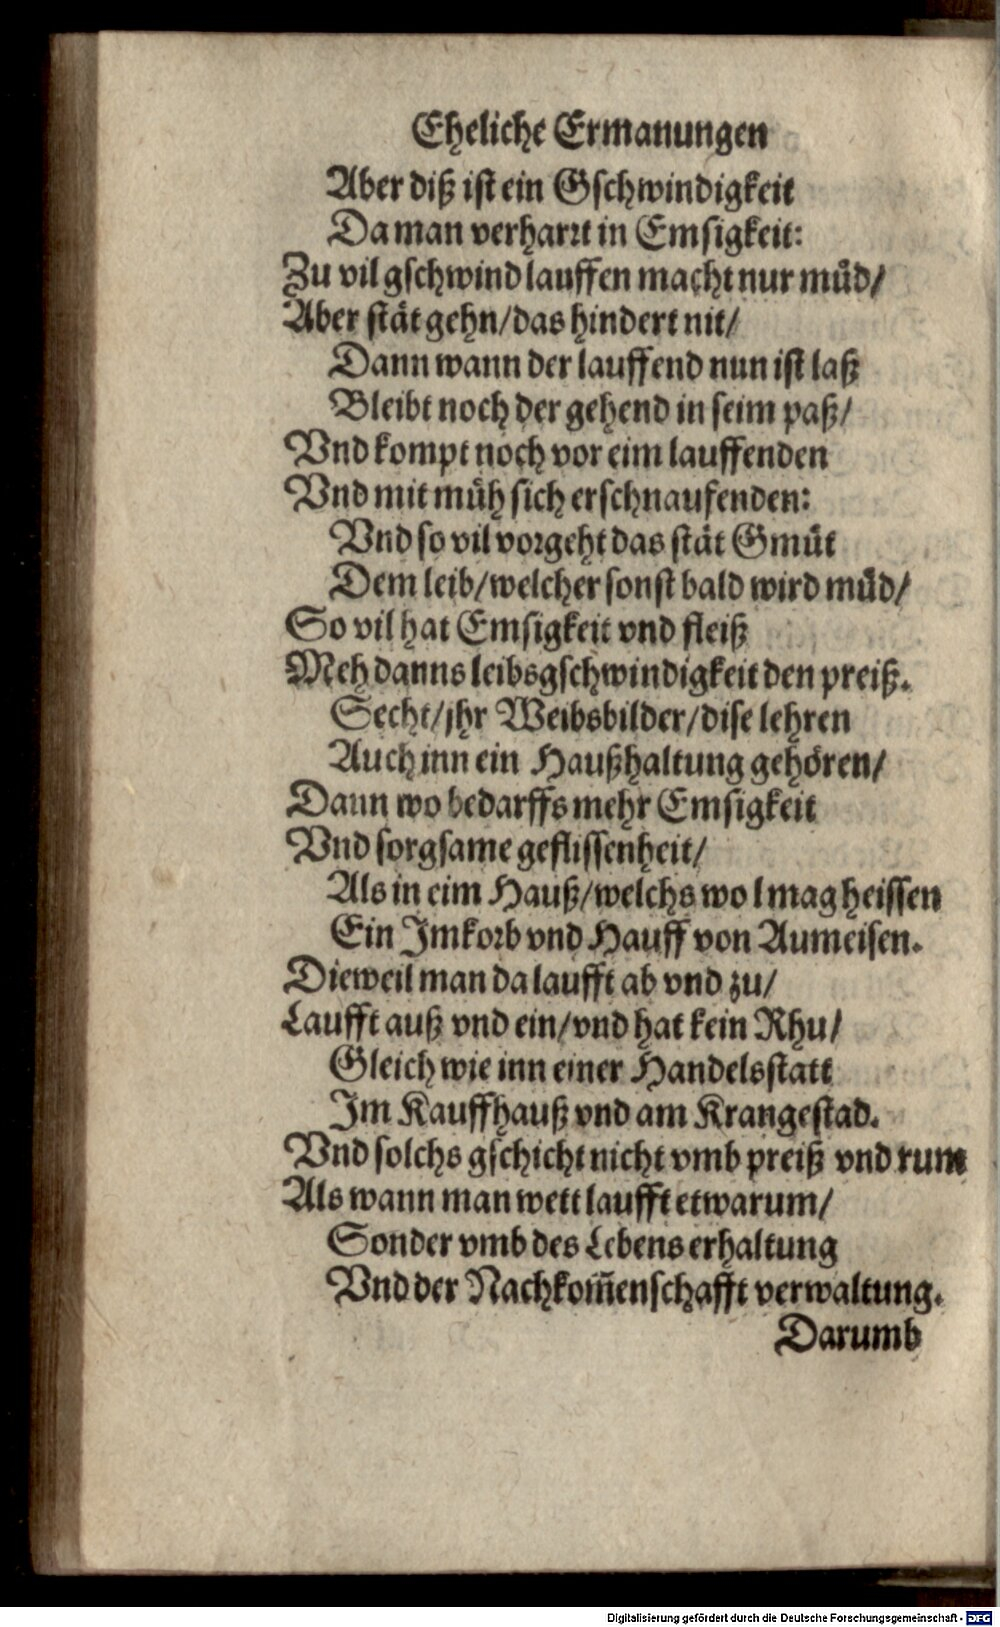 Eheliche Ermanungen
Aber diß ist ein Gschwindigkeit
Da man verharrt in Emsigkeit:
Zu vil gschwind lauffen macht nur müd/
Aber stät gehn/das hindert nit/
Dann wann der lauffend nun ist laß
Bleibt noch der gehend in seim paß/
Vnd kompt noch vor eim lauffenden
Vnd mit müh sich erschnaufenden:
Vnd so vil vorgeht das stät Gmüt
Dem leib/welcher sonst bald wird müd/
So vil hat Emsigkeit vnd fleiß
Meh danns leibsgschwindigkeit den preiß.
Secht/jhr Weibsbilder/dise lehren
Auch inn ein Haußhaltung gehören/
Dann wo bedarffs mehr Emsigkeit
Vnd sorgsame geflissenheit/
Als in eim Hauß/welchs wol mag heissen
Ein Imkorb vnd Hauff von Aumeisen.
Dieweil man da laufft ab vnd zu/
Laufft auß vnd ein/vnd hat kein Rhu/
Gleich wie inn einer Handelsstatt
Im Kauffhauß vnd am Krangestad.
Vnd solchs gschicht nicht vmb preiß vnd rum
Als wann man wett laufft etwarum/
Sonder vmb des Lebens erhaltung
Vnd der Nachkom̃enschafft verwaltung.
Darumb
Digitalisierung gefördert durch die Deutsche Forschungsgemeinschaft - DFG